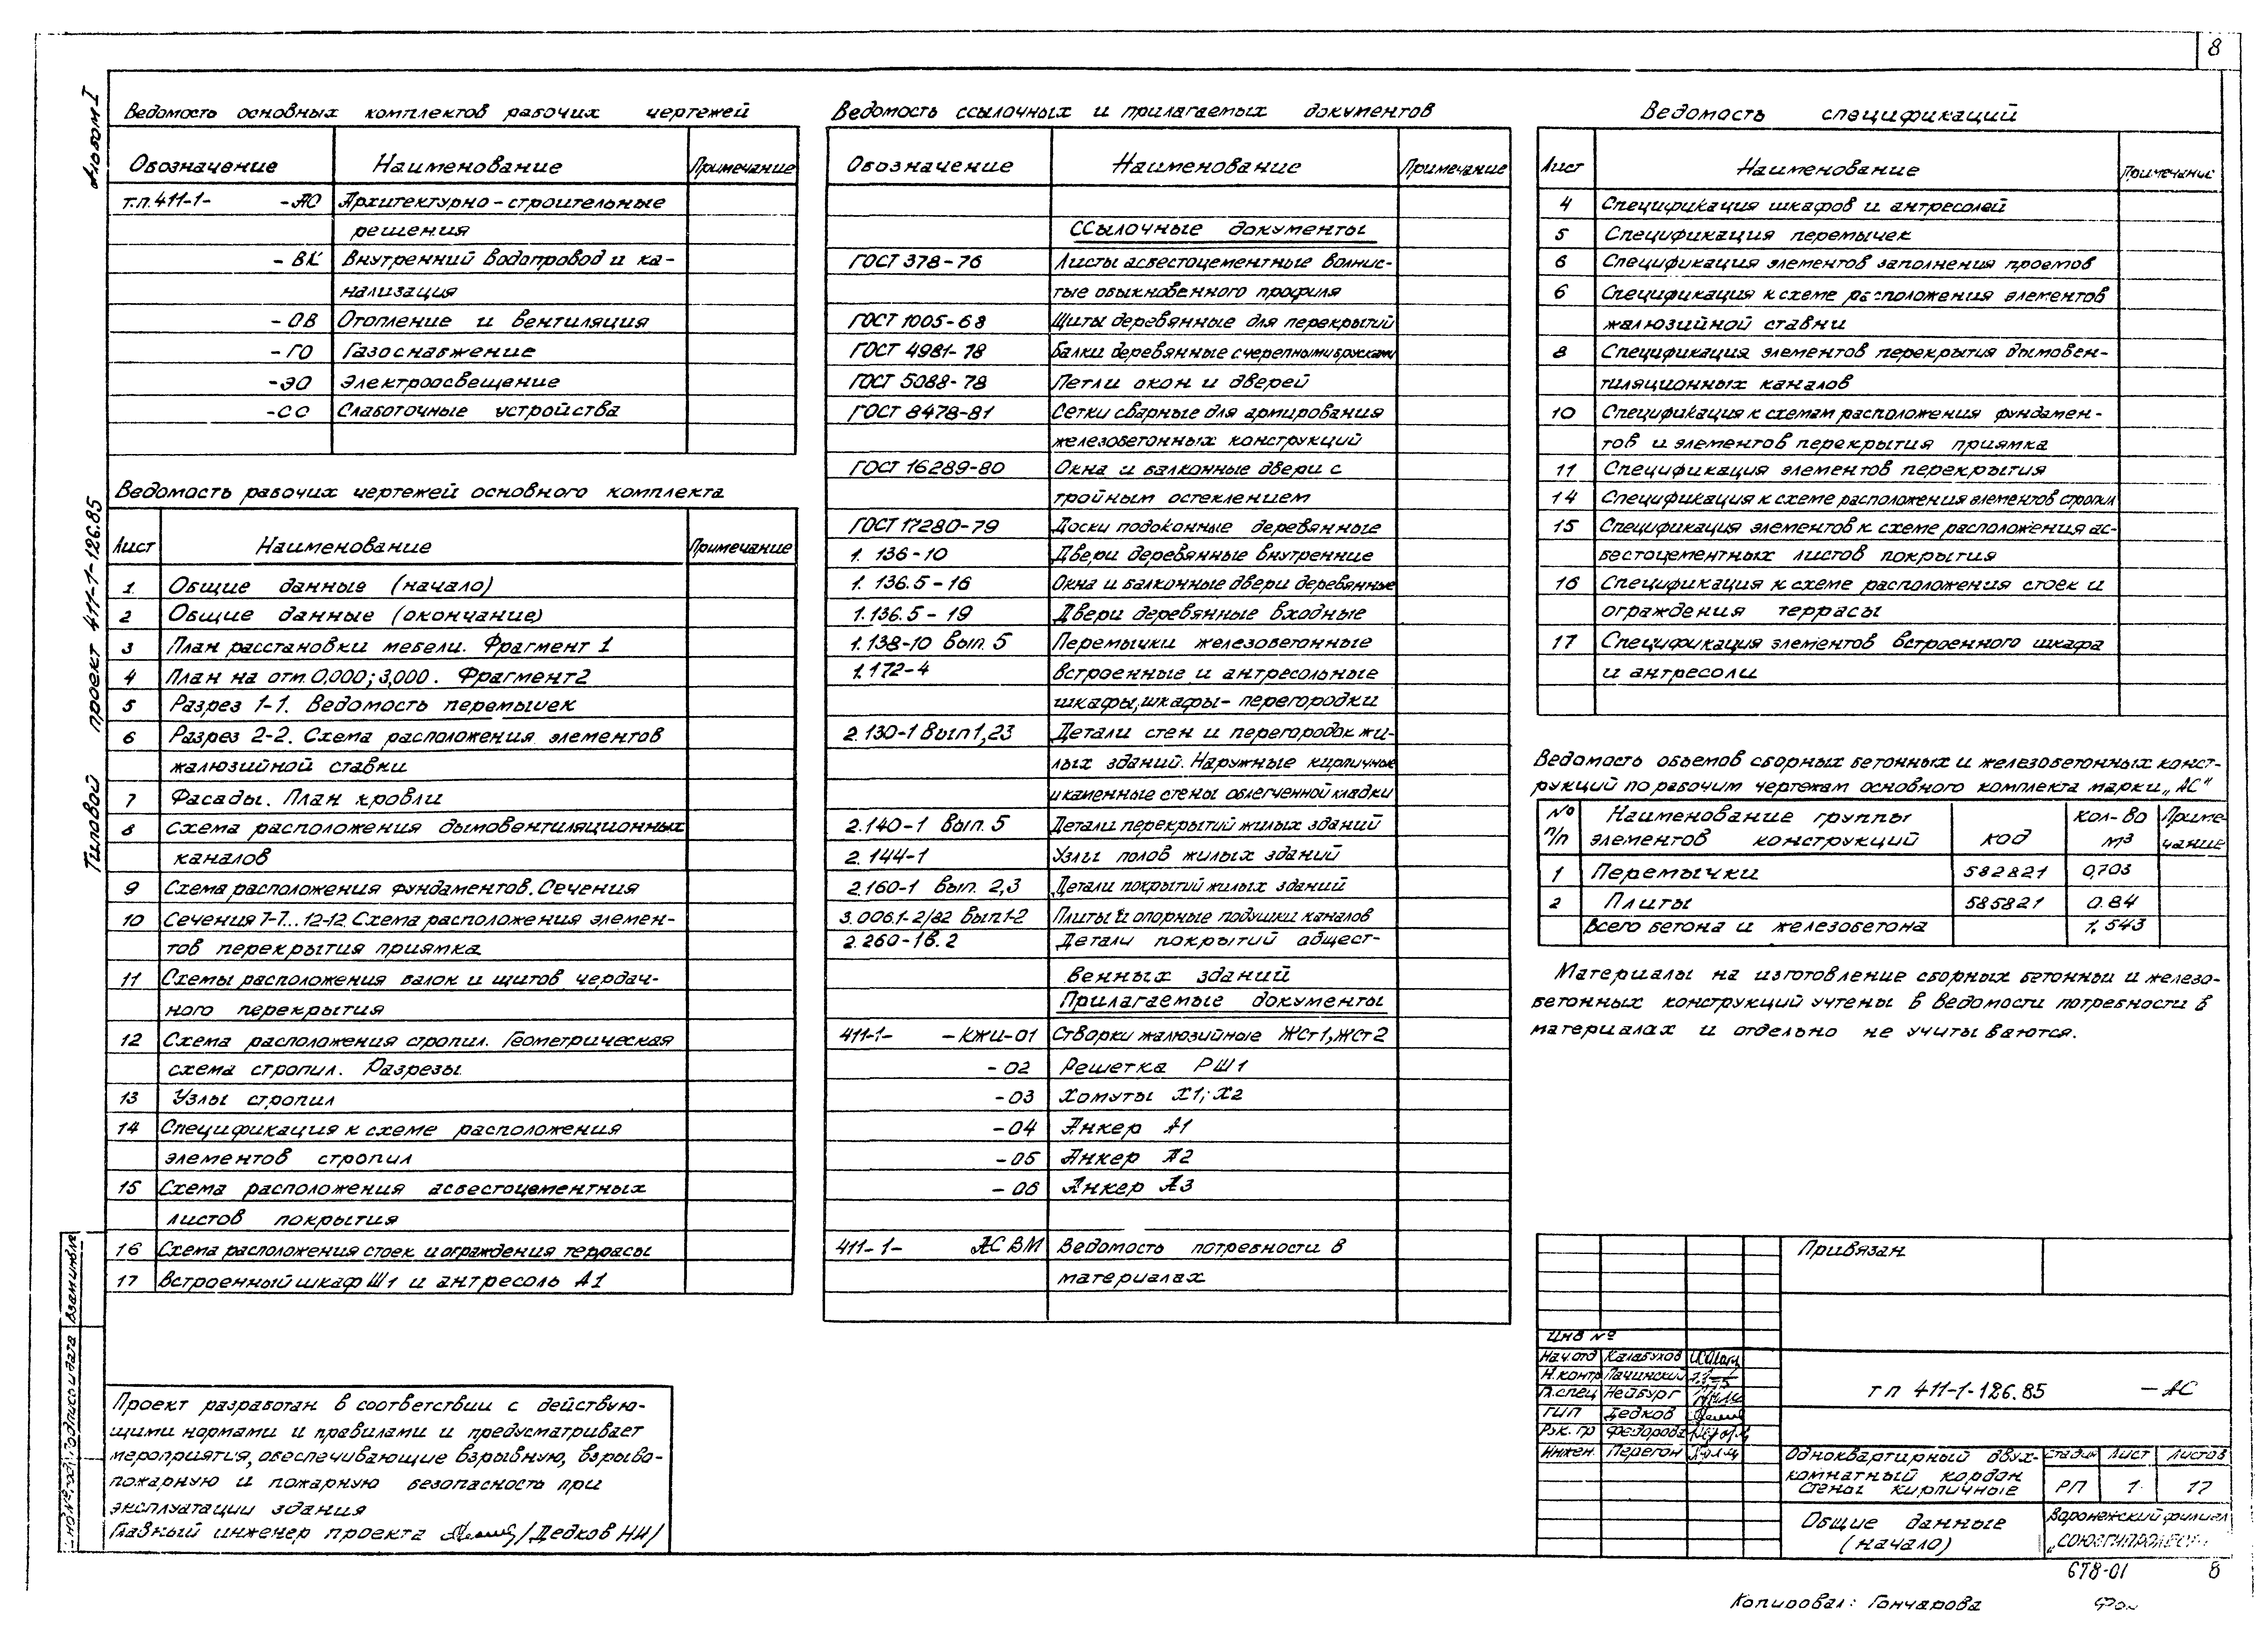 8
Альбом I
Типовой проект 411-1-126.85
Ведомость основных комплектов рабочих чертежей
Обозначение Наименование Примечание
т.п.411-1- -АС Архитектурно-строительные
решения
-ВК Внутренний водопровод и ка-
нализация
-ОВ Отопление и вентиляция
-ГО Газоснабжение
-ЭО Электроосвещение
-СС Слаботочные устройства
Ведомость рабочих чертежей основного комплекта
Лист Наименование Примечание
1 Общие данные (начало)
2 Общие данные (окончание)
3 План расстановки мебели. Фрагмент 1
4 План на отм. 0,000; 3,000. Фрагмент 2
5 Разрез 1-1. Ведомость перемычек
6 Разрез 2-2. Схема расположения элементов
жалюзийной ставки
7 Фасады. План кровли
8 Схема расположения дымовентиляционных
каналов
9 Схема расположения фундаментов. Сечения
10 Сечения 7-7... 12-12. Схема расположения элемен-
тов перекрытия приямка
11 Схемы расположения балок и щитов чердач-
ного перекрытия
12 Схема расположения стропил. Геометрическая
схема стропил. Разрезы
13 Узлы стропил
14 Спецификация к схеме расположения
элементов стропил
15 Схема расположения асбестоцементных
листов покрытия
16 Схема расположения стоек и ограждения террасы
17 Встроенный шкаф Ш1 и антресоль А1
Проект разработан в соответствии с действую-
щими нормами и правилами и предусматривает
мероприятия, обеспечивающие взрывную, взрыво-
пожарную и пожарную безопасность при
эксплуатации здания
Главный инженер проекта /Дедков НИ/
Ведомость ссылочных и прилагаемых документов
Обозначение Наименование Примечание
Ссылочные документы
ГОСТ 378-76 Листы асбестоцементные волнис-
тые обыкновенного профиля
ГОСТ 1005-68 Щиты деревянные для перекрытий
ГОСТ 4981-78 Балки деревянные с черепными брусками
ГОСТ 5088-78 Петли окон и дверей
ГОСТ 8478-81 Сетки сварные для армирования
железобетонных конструкций
ГОСТ 16289-80 Окна и балконные двери с
тройным остеклением
ГОСТ 17280-79 Доски подоконные деревянные
1.136-10 Двери деревянные внутренние
1.136.5-16 Окна и балконные двери деревянные
1.136.5-19 Двери деревянные входные
1.138-10 вып. 5 Перемычки железобетонные
1.172-4 Встроенные и антресольные
шкафы, шкафы-перегородки
2.130-1 Вып 1,23 Детали стен и перегородок жи-
лых зданий. Наружные кирпичные
и каменные стены облегченной кладки
2.140-1 Вып. 5 Детали перекрытий жилых зданий
2.144-1 Узлы полов жилых зданий
2.160-1 Вып. 2,3 Детали покрытий жилых зданий
3.006.1-2/82 Вып.1-2 Плиты и опорные подушки каналов
2.260-1 в. 2 Детали покрытий общест-
венных зданий
Прилагаемые документы
411-1- -КЖИ-01 Створки жалюзийные ЖСт1, ЖСт2
-02 Решетка РШ1
-03 Хомуты Х1; Х2
-04 Анкер А1
-05 Анкер А2
-06 Анкер А3
411-1- АС ВМ Ведомость потребности в
материалах
Ведомость спецификаций
Лист Наименование Примечание
4 Спецификация шкафов и антресолей
5 Спецификация перемычек
6 Спецификация элементов заполнения проемов
6 Спецификация к схеме расположения элементов
жалюзийной ставни
8 Спецификация элементов перекрытия дымовен-
тиляционных каналов
10 Спецификация к схемам расположения фундамен-
тов и элементов перекрытия приямка
11 Спецификация элементов перекрытия
14 Спецификация к схеме расположения элементов стропил
15 Спецификация элементов к схеме расположения ас-
бестоцементных листов покрытия
16 Спецификация к схеме расположения стоек и
ограждения террасы
17 Спецификация элементов встроенного шкафа
и антресоли
Ведомость объемов сборных бетонных и железобетонных конст-
рукций по рабочим чертежам основного комплекта марки „АС"
№ п/п Наименование группы элементов конструкций код кол-во м³ Приме-чание
1 Перемычки 582821 0,703
2 Плиты 585821 0.84
Всего бетона и железобетона 1,543
Материалы на изготовление сборных бетонны и железо-
бетонных конструкций учтены в ведомости потребности в
материалах и отдельно не учитываются.
Привязан
Инв №
Нач.отд Калабухов
Н.контр Пачинский
Гл.спец Нейбург
ГИП Дедков
Рук. гр Федорова
Инжен. Перегон
т п 411-1-126.85 -АС
Одноквартирный двух-
комнатный кордон
Стены кирпичные
Стадия Лист Листов
РП 1 17
Общие данные
(начало)
Воронежский филиал
„СОЮЗГИПРОЛЕСХОЗ"
678-01 8
Копировал: Гончарова